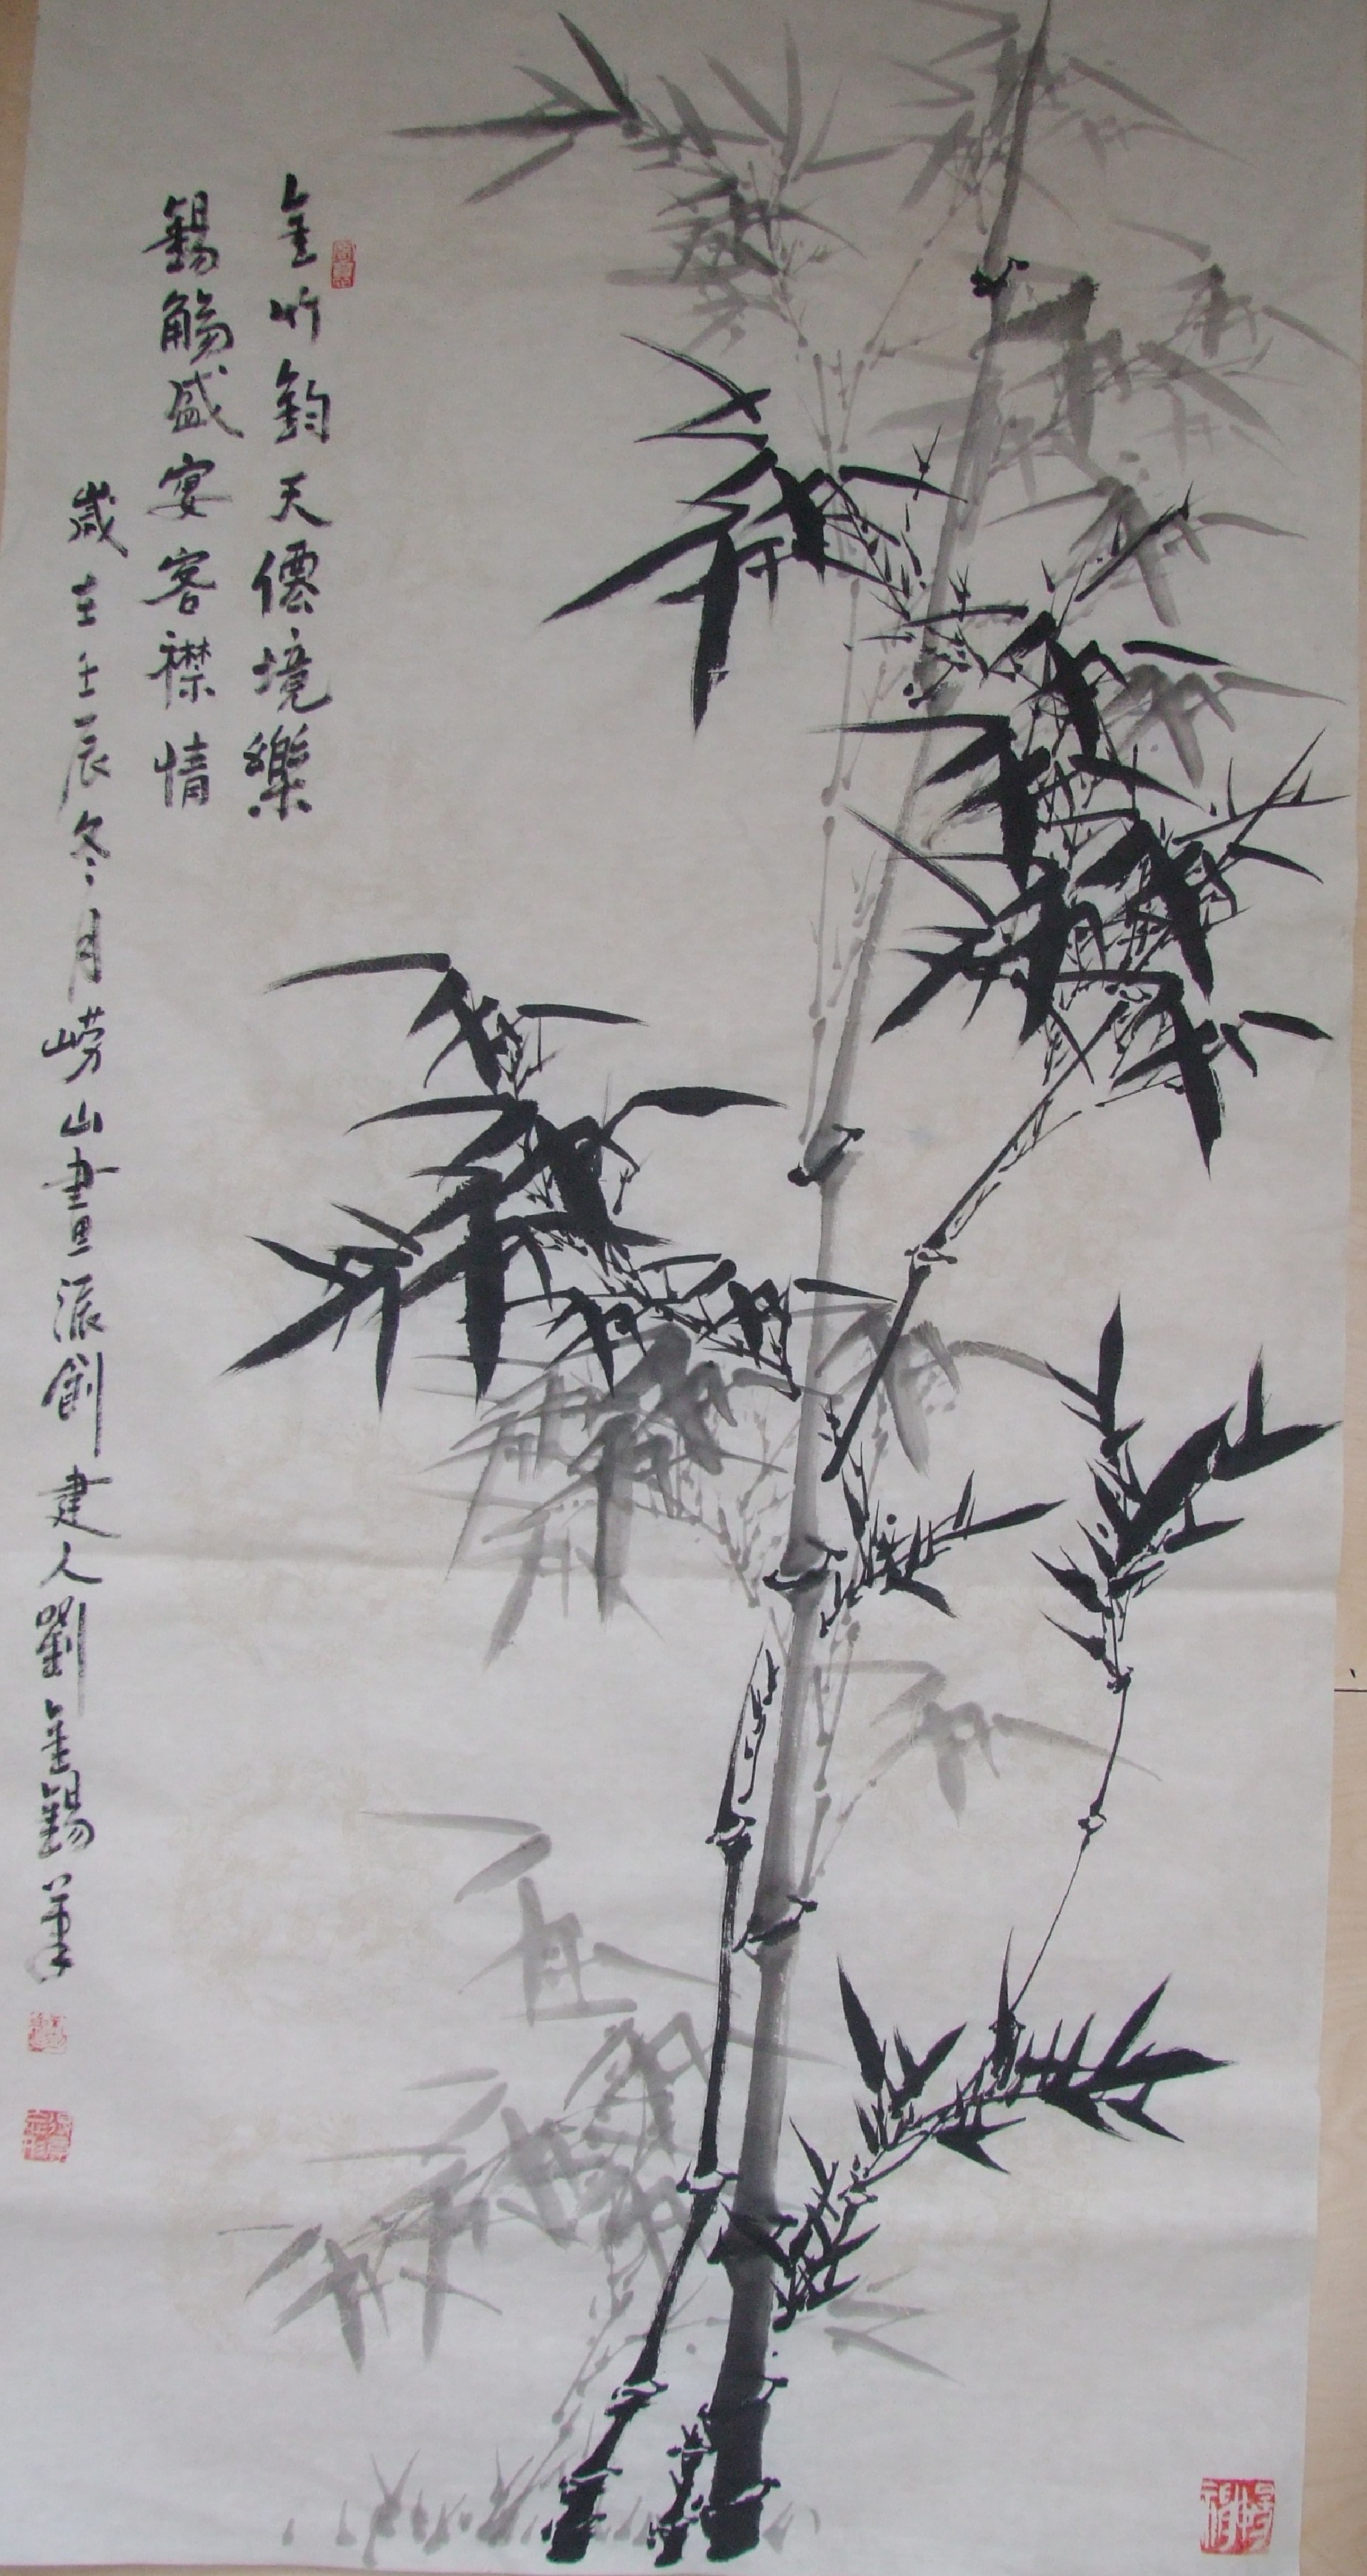 金竹鈞天僊境樂
錫觴盛宴客襟情
歲在壬辰冬月嶗山畫派創建人劉金錫筆